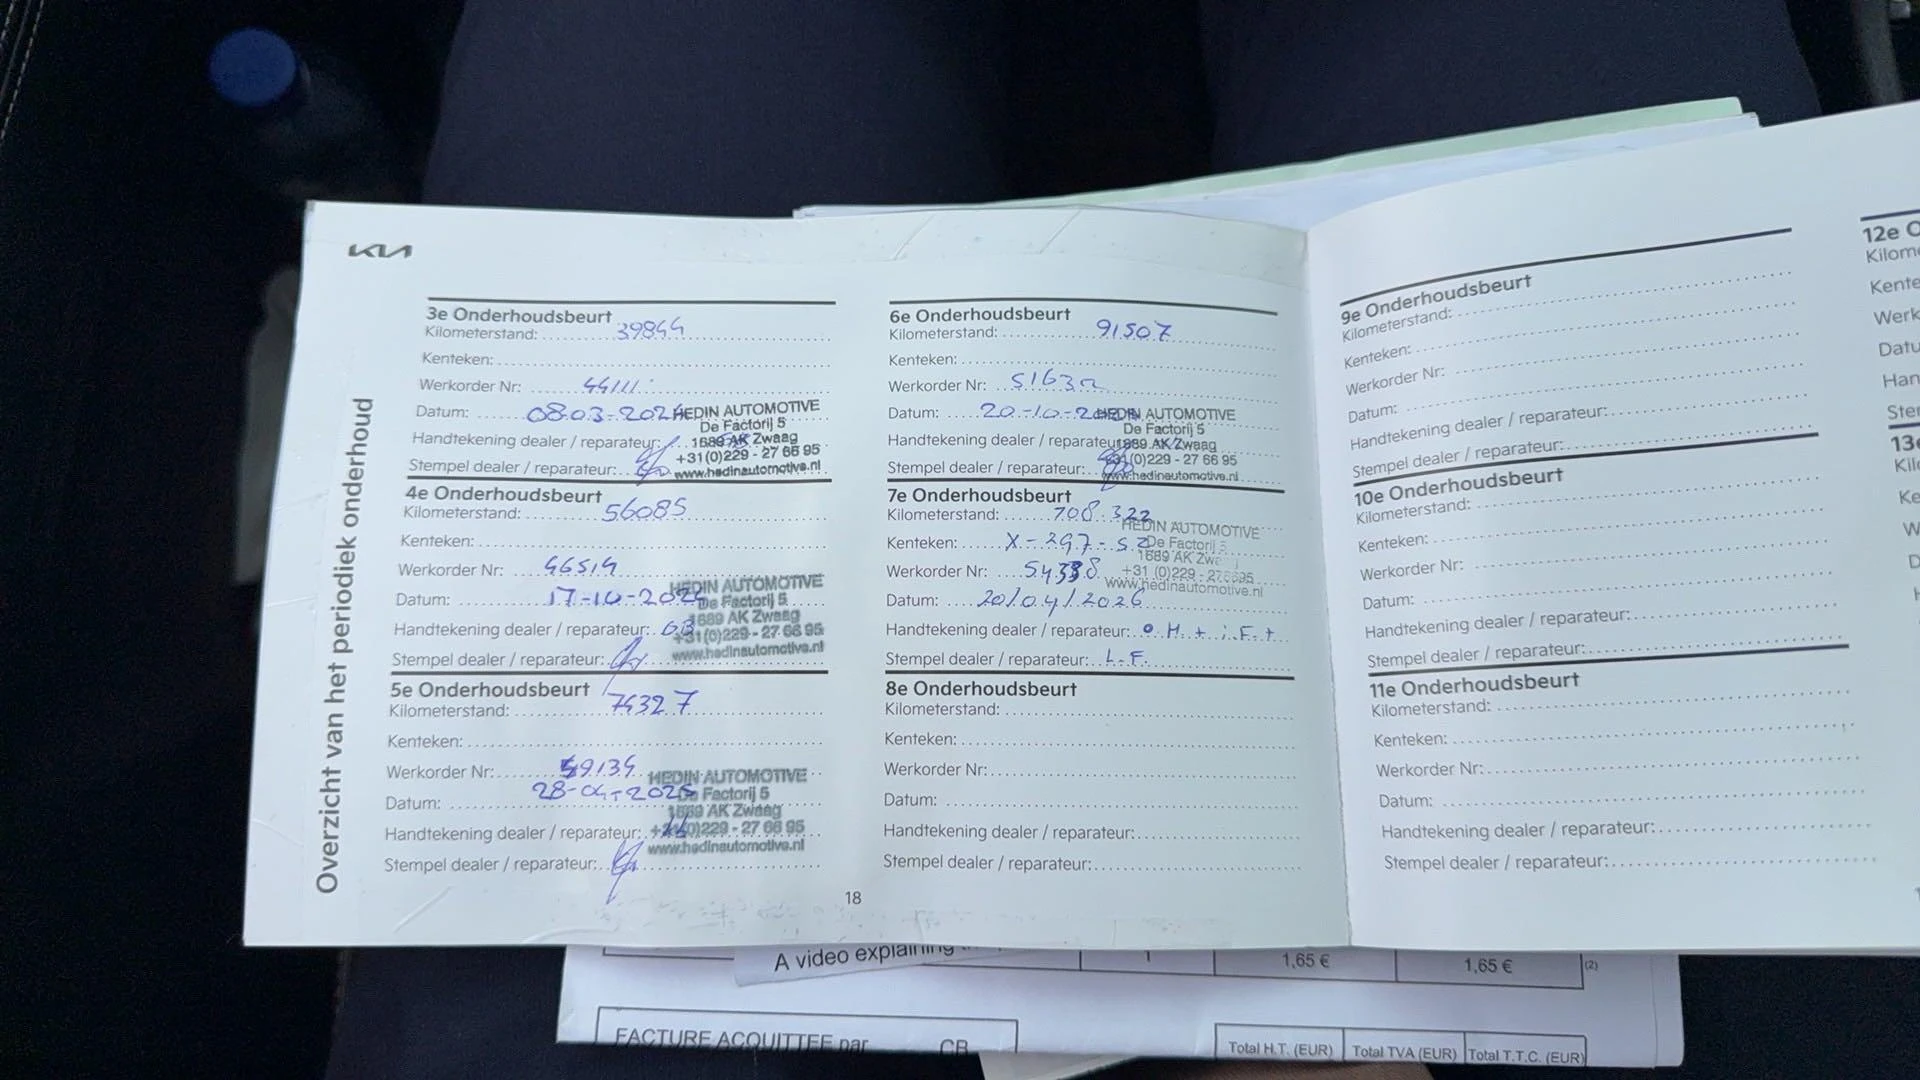 KIA
Overzicht van het periodiek onderhoud
3e Onderhoudsbeurt
Kilometerstand: 39844
Kenteken:
Werkorder Nr: 44111
Datum: 08-03-2024
HEDIN AUTOMOTIVE
De Factorij 5
Handtekening dealer / reparateur:
1689 AK Zwaag
+31(0)229 - 27 66 95
Stempel dealer / reparateur:
www.hedinautomotive.nl
4e Onderhoudsbeurt
Kilometerstand: 56085
Kenteken:
Werkorder Nr: 46514
Datum: 17-10-2024
HEDIN AUTOMOTIVE
De Factorij 5
1689 AK Zwaag
Handtekening dealer / reparateur: GB
+31(0)229 - 27 66 95
Stempel dealer / reparateur:
www.hedinautomotive.nl
5e Onderhoudsbeurt
Kilometerstand: 74327
Kenteken:
Werkorder Nr: 49134
Datum: 28-04-2025
HEDIN AUTOMOTIVE
De Factorij 5
1689 AK Zwaag
Handtekening dealer / reparateur:
+31(0)229 - 27 66 95
www.hedinautomotive.nl
Stempel dealer / reparateur:
18
6e Onderhoudsbeurt
Kilometerstand: 91507
Kenteken:
Werkorder Nr:
Datum: 20-10-20
HEDIN AUTOMOTIVE
De Factorij 5
Handtekening dealer / reparateur:
1689 AK Zwaag
+31(0)229 - 27 66 95
Stempel dealer / reparateur:
www.hedinautomotive.nl
7e Onderhoudsbeurt
Kilometerstand: 108.322
HEDIN AUTOMOTIVE
Kenteken: X-297-SZ
De Factorij 5
1689 AK Zw
Werkorder Nr: 54338
+31 (0)229 - 276695
www.hedinautomotive.nl
Datum: 20/04/2026
Handtekening dealer / reparateur: O.H. + i.F. +
Stempel dealer / reparateur: L.F.
8e Onderhoudsbeurt
Kilometerstand:
Kenteken:
Werkorder Nr:
Datum:
Handtekening dealer / reparateur:
Stempel dealer / reparateur:
9e Onderhoudsbeurt
Kilometerstand:
Kenteken:
Werkorder Nr:
Datum:
Handtekening dealer / reparateur:
Stempel dealer / reparateur:
10e Onderhoudsbeurt
Kilometerstand:
Kenteken:
Werkorder Nr:
Datum:
Handtekening dealer / reparateur:
Stempel dealer / reparateur:
11e Onderhoudsbeurt
Kilometerstand:
Kenteken:
Werkorder Nr:
Datum:
Handtekening dealer / reparateur:
Stempel dealer / reparateur:
12e O
Kilome
Kente
Werk
Datu
Han
Ste
13e
Kil
Ke
W
D
A video explaining
1
1,65 €
1,65 €
(2)
FACTURE ACQUITTEE par
CB
Total H.T. (EUR)
Total TVA (EUR)
Total T.T.C. (EUR)